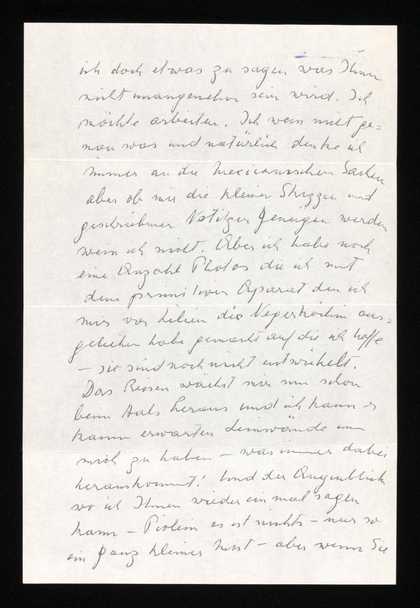 ich doch etwas zu sagen was Ihnen
nicht unangenehm sein wird. Ich
möchte arbeiten. Ich weiss nicht ge-
nau was und natürlich denke ich
immer an die mexicanischen Sachen
aber ob mir die kleinen Skizzen und
geschriebenen Notitzen genügen werden
weiss ich nicht. Aber ich habe noch
eine Anzahl Photos die ich mit
dem primitiven Aparat den ich
mir von
geliehen habe gemacht auf die ich hoffe
– sie sind noch nicht entwickelt.
Das Reisen wächst mir nun schon
beim Hals heraus und ich kann es
kaum erwarten vier wände um
mich zu haben – was immer dabei
herauskommt! Und der Augenblick
wo ich Ihnen wieder einmal sagen
kann – es ist nichts – nur so
ein ganz kleiner Mist – aber wenn Sie